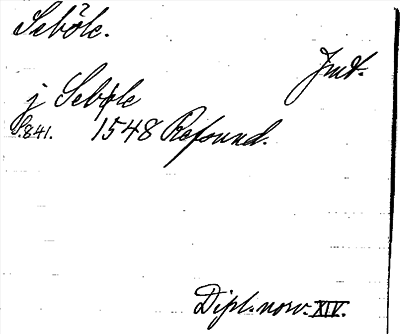 Seböle.
Jmt.
j Sebøle
S. 841. 1548 Refsund.
Dipl. norv. XIV.